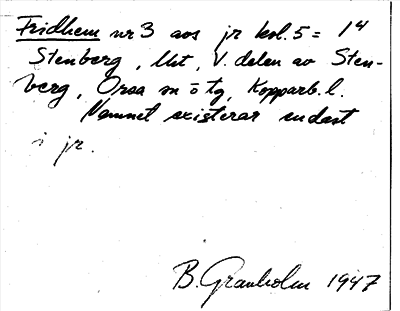 Fridhem nr 3 avs jr kol. 5 = 1⁴
Stenberg, Ust, V. delen av Sten-
berg, Orsa sn ö tg, Kopparb. l.
Namnet existerar endast
i jr.
B. Granholm 1947